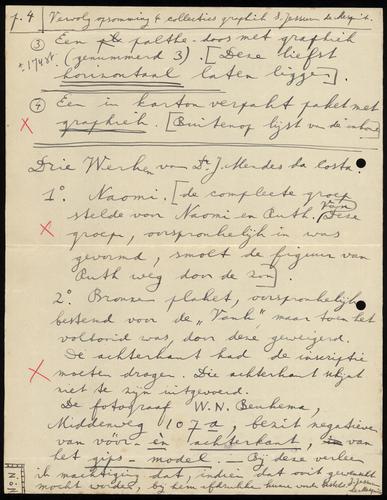 p. 4 Vervolg opsomming & collecties graphiek S. Jessurun de Mesquita.
③ Een palthe-doos met graphiek
± 174 st. (genummerd 3). [Deze liefst
horizontaal laten liggen].
④ Een in karton verpakt paket met
x graphiek [Buitenop lijst van de inhoud
Drie Werken van Dr. J. Mendes da Costa.
1°. Naomi. [de compleete groep
stelde voor Naomi en Ruth. Van Deze
x groep, oorspronkelijk in was
gevormd, smolt de figuur van
Ruth weg door de zon].
2°. Bronzen plaket, oorspronkelijk
bestemd voor de „Vank", maar toen het
voltooid was, door deze geweigerd.
De achterkant had de inscriptie
x moeten dragen. Die achterkant schijnt
niet te zijn uitgevoerd.
De fotograaf W. N. Beukema,
Middenweg 107a, bezit negatieven
van vóór- en achterkant, van
het gips-model — Bij deze verleen
ik machtiging dat, indien dat ooit gewenscht
mocht worden, bij hem afdrukken
S. Jessurun
de Mesquita